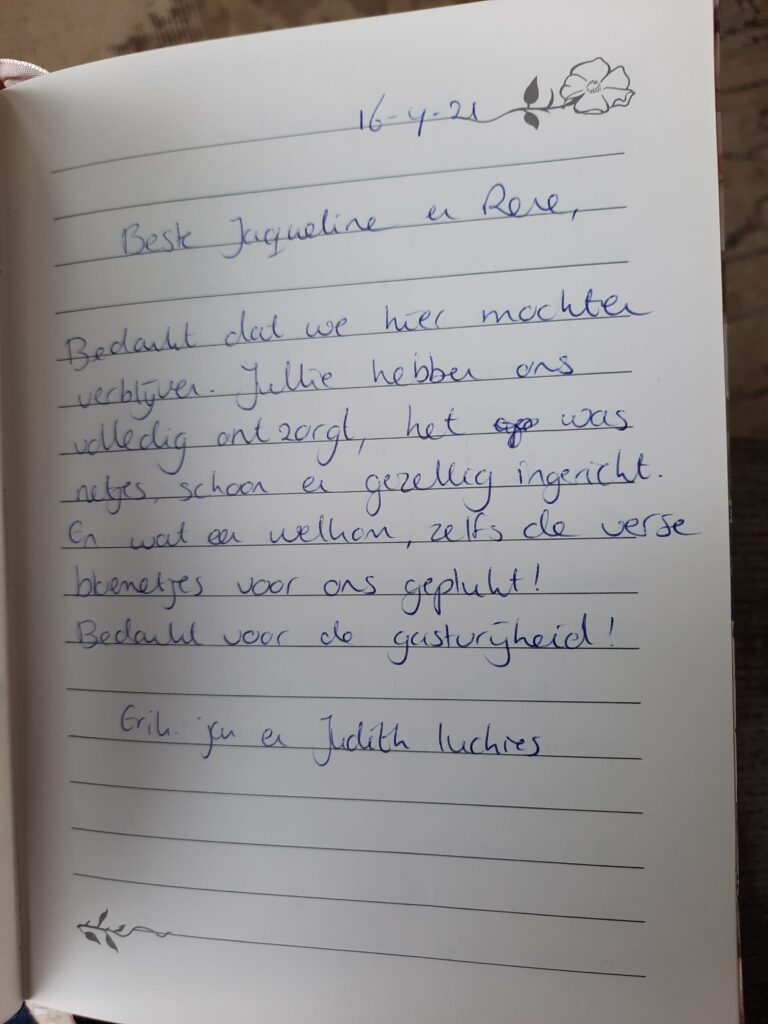 16-4-21
Beste Jaqueline en Rene,
Bedankt dat we hier mochten
verblijven. Jullie hebben ons
volledig ontzorgt, het was
netjes, schoon en gezellig ingericht.
En wat een welkom, zelfs de verse
bloemetjes voor ons geplukt!
Bedankt voor de gastvrijheid!
Erik jan en Judith Luchies